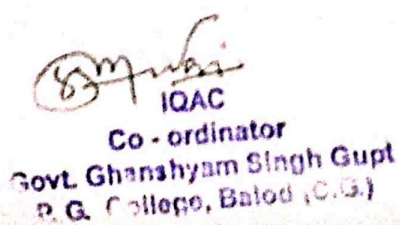 IQAC
Co - ordinator
Govt. Ghanshyam Singh Gupt
P. G. College, Balod (C.G.)